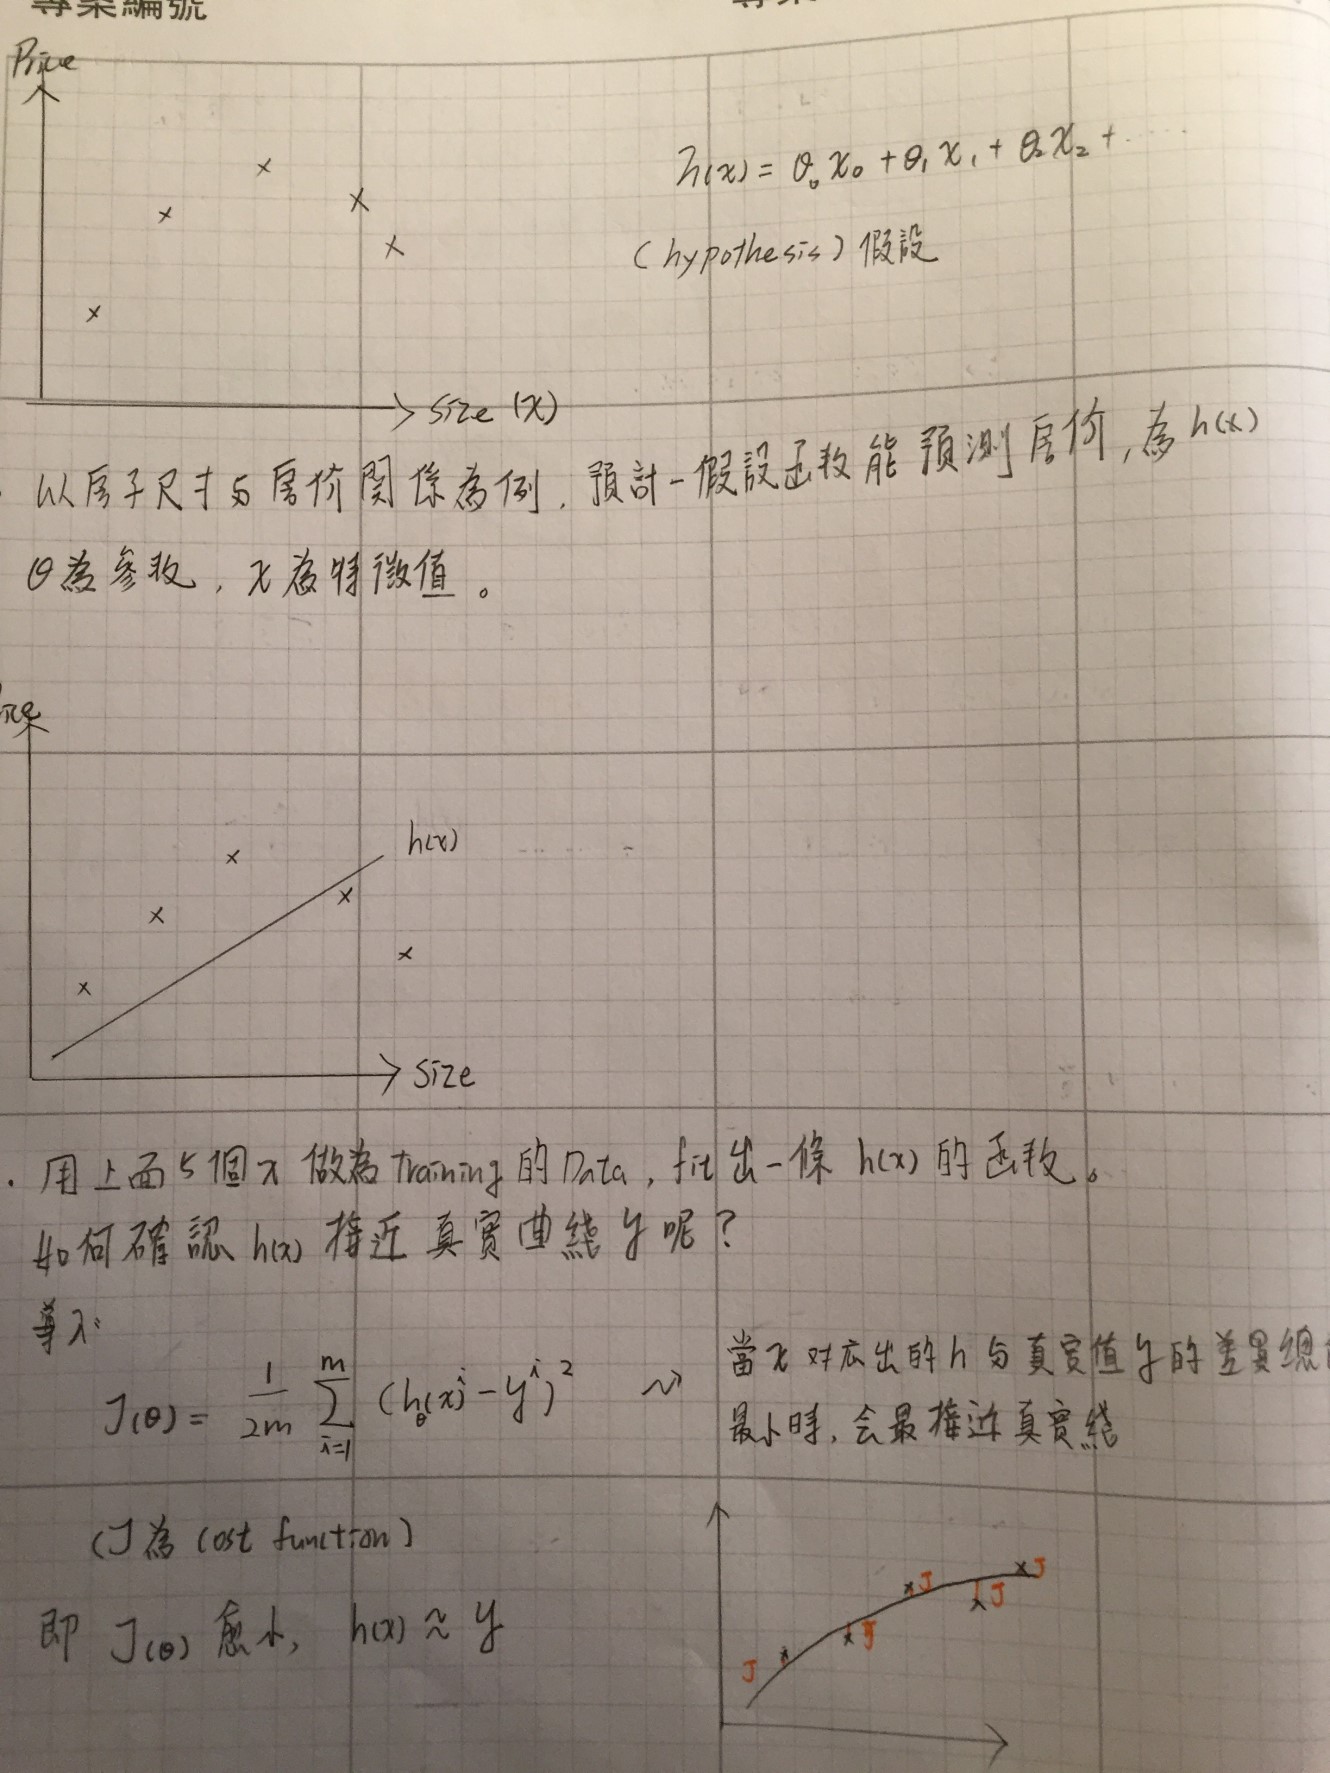 專案編號
專案
Price
h(x) = θ₀x₀ + θ₁x₁ + θ₂x₂ + ......
(hypothesis) 假設
size (x)
以房子尺寸与房价関係為例, 預計一假設函数能預測房价, 為h(x)
θ為參数, x為特徵值。
h(x)
size
· 用上面5個x做為training的Data, fit出一條h(x)的函数。
如何確認h(x)接近真實曲綫y呢?
導入:
J(θ) = 1/2m Σ_{i=1}^{m} (h_θ(x)^i - y^i)^2
當x对应出的h与真实值y的差異總
最小時, 会最接近真實綫
(J為cost function)
即 J(θ) 愈小, h(x) ≈ y
J
J
J
J
J